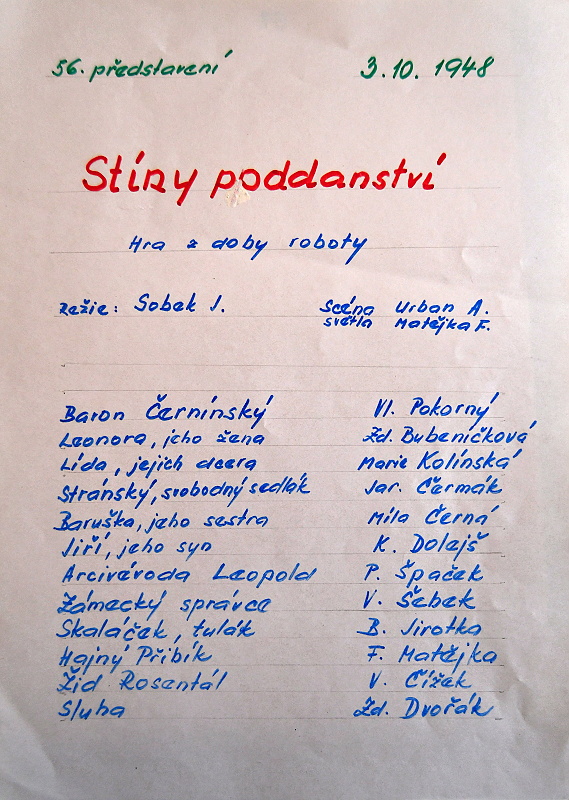 56. představení 3.10. 1948
Stíny poddanství
Hra z doby roboty
Režie: Sobek J. Scéna Urban A.
světla Matějka F.
Baron Černínský Vl. Pokorný
Leonora, jeho žena Zd. Bubeníčková
Lída, jejich dcera Marie Kolínská
Stránský, svobodný sedlák Jar. Čermák
Baruška, jeho sestra Míla Černá
Jiří, jeho syn K. Dolejš
Arcivévoda Leopold P. Špaček
Zámecký správce V. Šebek
Skaláček, tulák B. Jirotka
Hajný Přibík F. Matějka
Žid Rosentál V. Čížek
Sluha Zd. Dvořák